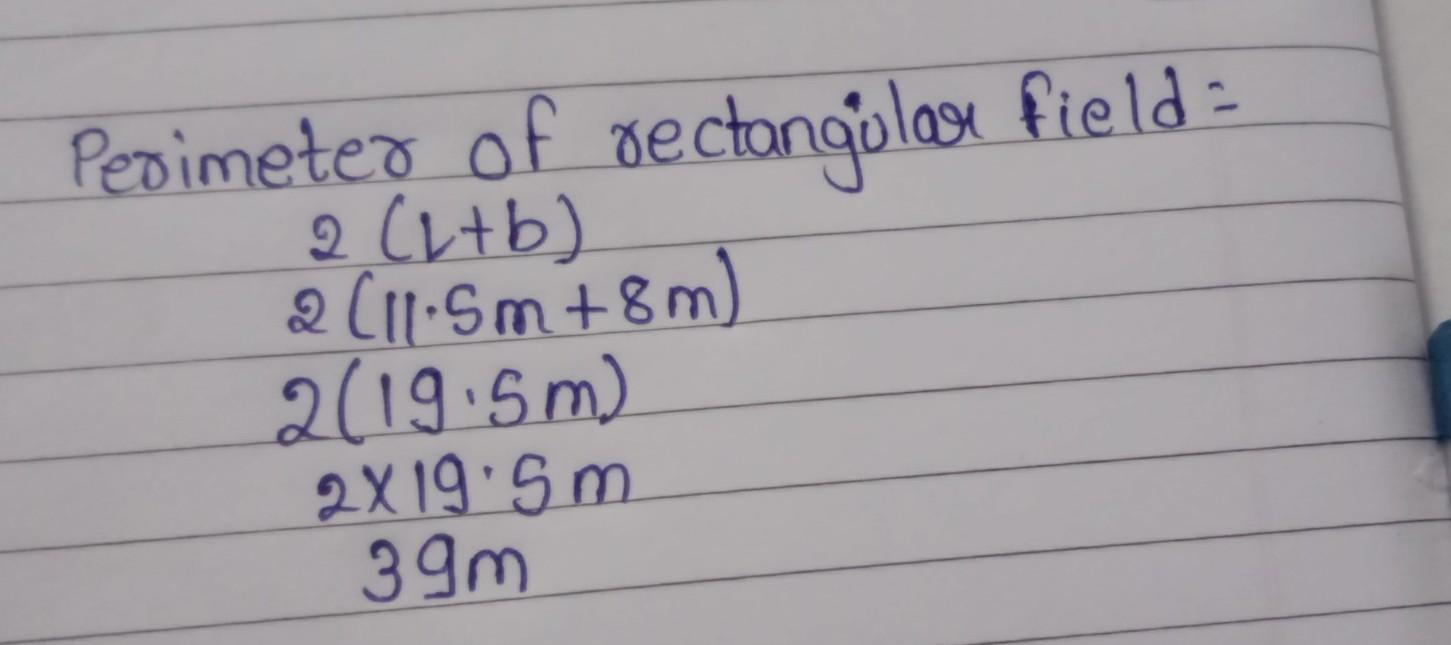 Perimeter of rectangular field =
2 (L+b)
2 (11.5m + 8m)
2 (19.5m)
2 x 19.5m
39m